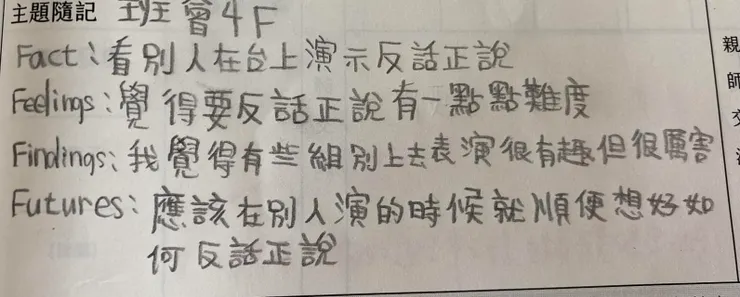 主題隨記 班會4F
Fact：看別人在台上演示反話正說
Feelings：覺得要反話正說有一點點難度
Findings：我覺得有些組別上去表演很有趣但很厲害
Futures：應該在別人演的時候就順便想好如
何反話正說
親
師
交